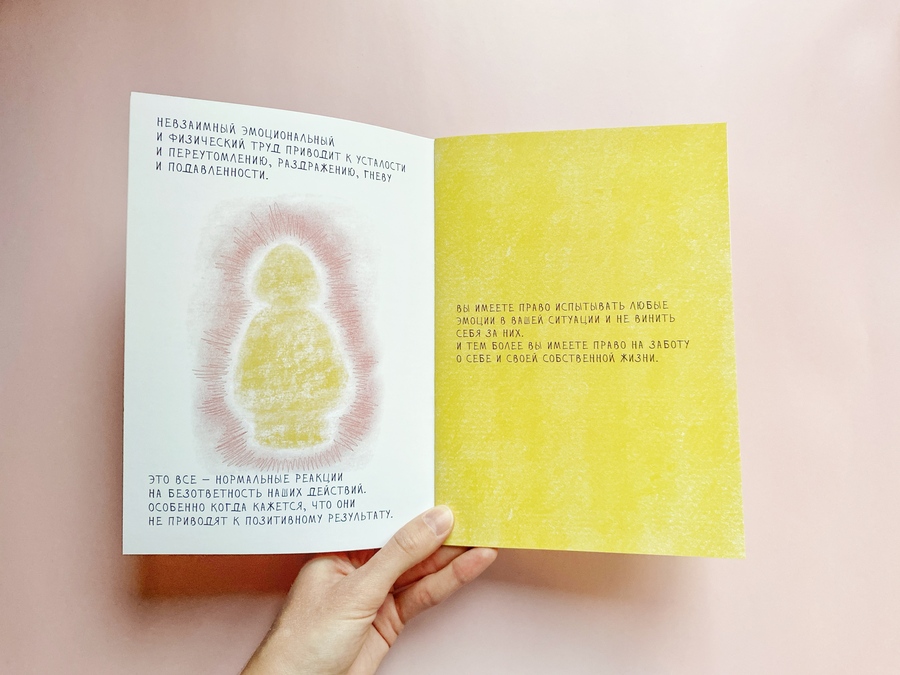 НЕВЗАИМНЫЙ ЭМОЦИОНАЛЬНЫЙ
И ФИЗИЧЕСКИЙ ТРУД ПРИВОДИТ К УСТАЛОСТИ
И ПЕРЕУТОМЛЕНИЮ, РАЗДРАЖЕНИЮ, ГНЕВУ
И ПОДАВЛЕННОСТИ.
ЭТО ВСЕ — НОРМАЛЬНЫЕ РЕАКЦИИ
НА БЕЗОТВЕТНОСТЬ НАШИХ ДЕЙСТВИЙ.
ОСОБЕННО КОГДА КАЖЕТСЯ, ЧТО ОНИ
НЕ ПРИВОДЯТ К ПОЗИТИВНОМУ РЕЗУЛЬТАТУ.
ВЫ ИМЕЕТЕ ПРАВО ИСПЫТЫВАТЬ ЛЮБЫЕ
ЭМОЦИИ В ВАШЕЙ СИТУАЦИИ И НЕ ВИНИТЬ
СЕБЯ ЗА НИХ.
И ТЕМ БОЛЕЕ ВЫ ИМЕЕТЕ ПРАВО НА ЗАБОТУ
О СЕБЕ И СВОЕЙ СОБСТВЕННОЙ ЖИЗНИ.